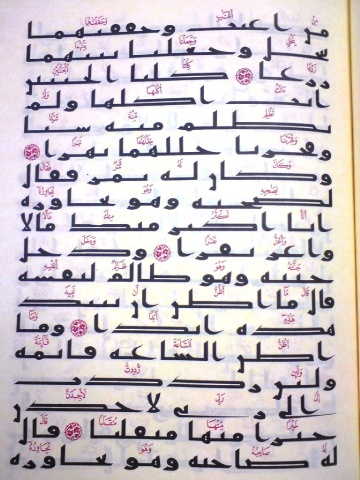 من اعنب وحففنهما
بنخل وجعلنا بينهما
زرعا كلتا الجنتين
اتت اكلها ولم
تظلم منه شيا
وفجرنا خللهما نهرا
وكان له ثمر فقال
لصحبه وهو يحاوره
انا اكثر منك مالا
واعز نفرا ودخل
جنته وهو ظالم لنفسه
قال ما اظن ان تبيد
هذه ابدا وما
اظن الساعه قائمه
ولئن رددت
الى ربي لاجدن
خيرا منها منقلبا قال
له صاحبه وهو يحاوره